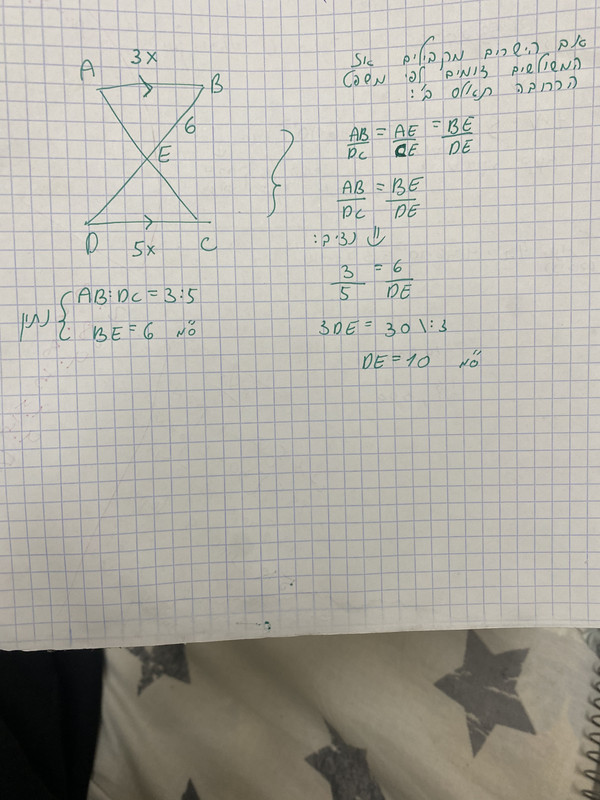 3x
A
B
6
E
D
5x
C
נתון
AB:DC = 3:5
BE = 6 ס"מ
אם הישרים מקבילים אז
המשולשים דומים לפי משפט
הרחבה תאלס ב':
AB/DC = AE/CE = BE/DE
AB/DC = BE/DE
נציב: ⇓
3/5 = 6/DE
3DE = 30 \:3
DE = 10 ס"מ